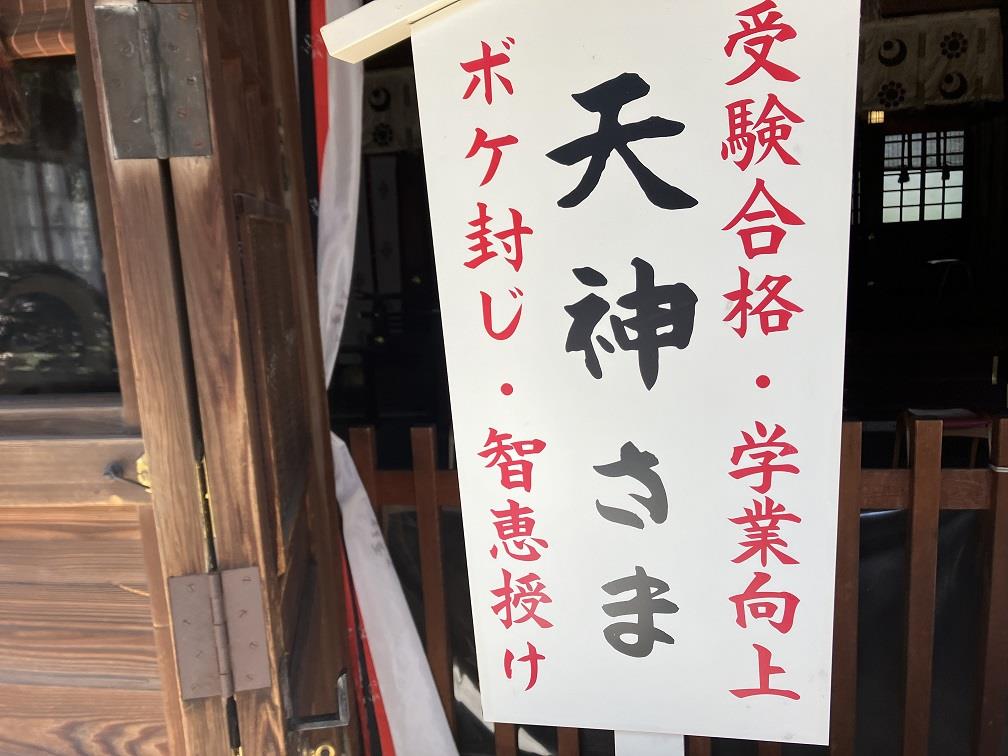 受験合格・学業向上
天神さま
ボケ封じ・智恵授け